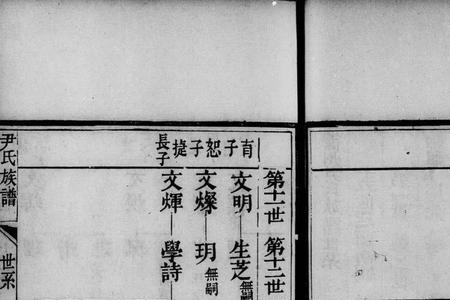 第十一世 第十二世
育子 文明 生芝 無嗣
恕子 文燦 玥 無嗣
捷長子 文煇 學詩
尹氏族譜 世系